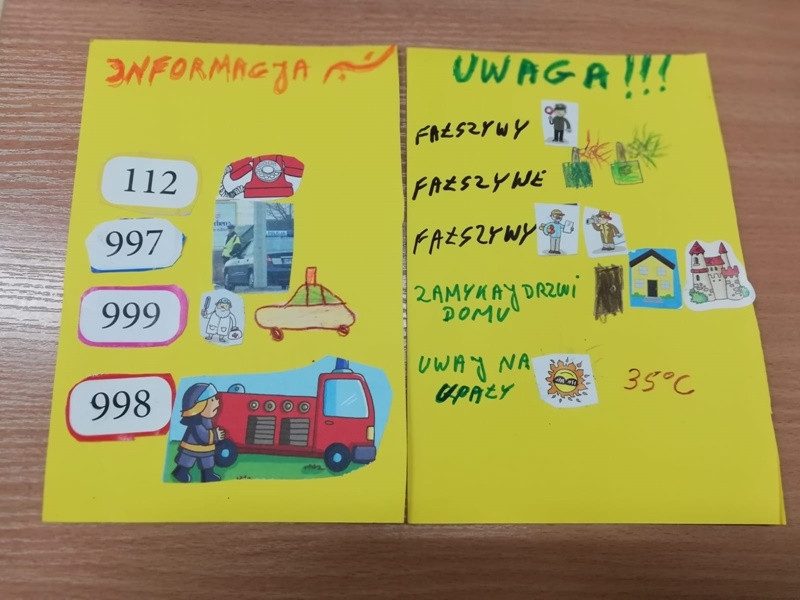 INFORMACJA
112
997
999
998
UWAGA!!!
FAŁSZYWY
FAŁSZYWE
FAŁSZYWY
ZAMYKAJ DRZWI
DOMU
UWAJ NA
UPAŁY
35°C